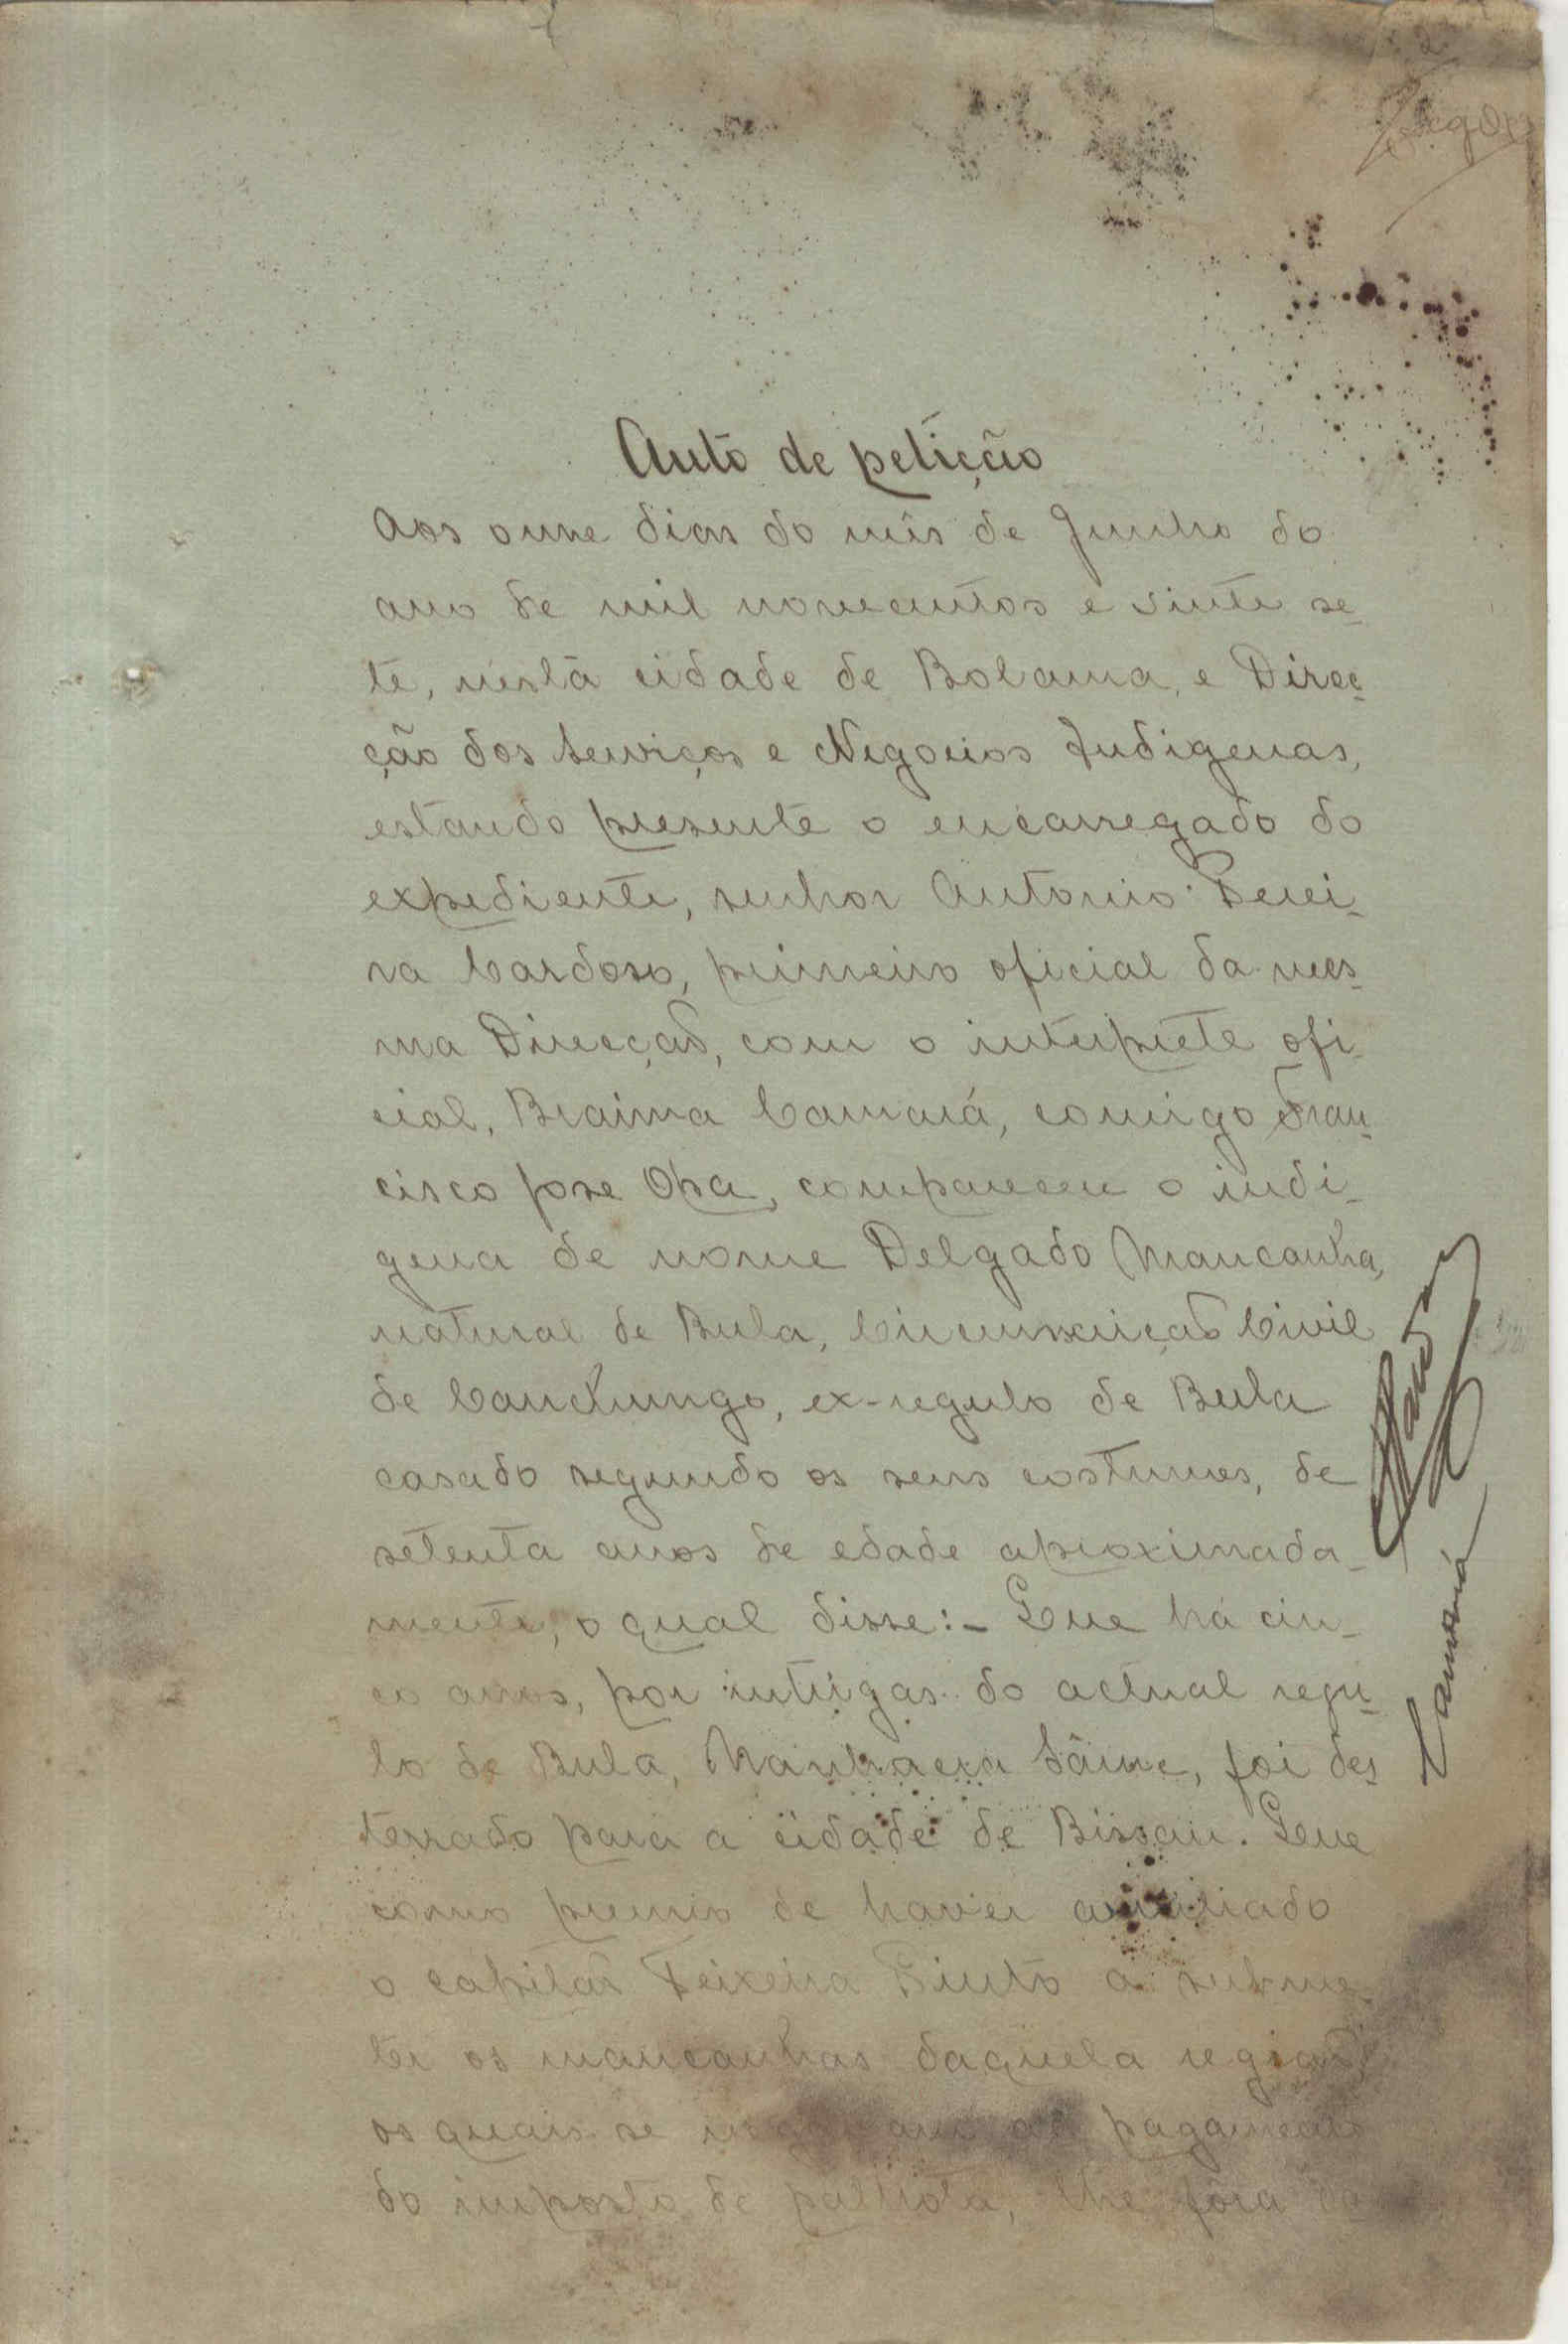 2
Auto de petição
Aos onze dias do mês de Junho do
ano de mil novecentos e vinte se-
te, nesta cidade de Bolama, e Direc-
ção dos Serviços e Negocios Indigenas,
estando presente o encarregado do
expediente, senhor Antonio Perei-
ra Cardoso, primeiro oficial da mes-
ma Direcção, com o interprete ofi-
cial, Braima Camará, comigo Fran-
cisco José Opa, compareceu o indi-
gena de nome Delgado Mancanha,
natural de Bula, Circunscrição Civil
de Canchungo, ex-regulo de Bula
casado segundo os seus costumes, de
setenta anos de edade aproximada-
mente, o qual disse:- Que há cin-
co anos, por intrigas do actual regu-
lo de Bula, Sâine, foi des-
terrado para a cidade de Bissau. Que
como premio de haver auxiliado
o capitão Teixeira Pinto a subme-
ter os mancanhas daquela região,
os quais se negavam ao pagamento
do imposto de palhota, lhe fôra da
Camará